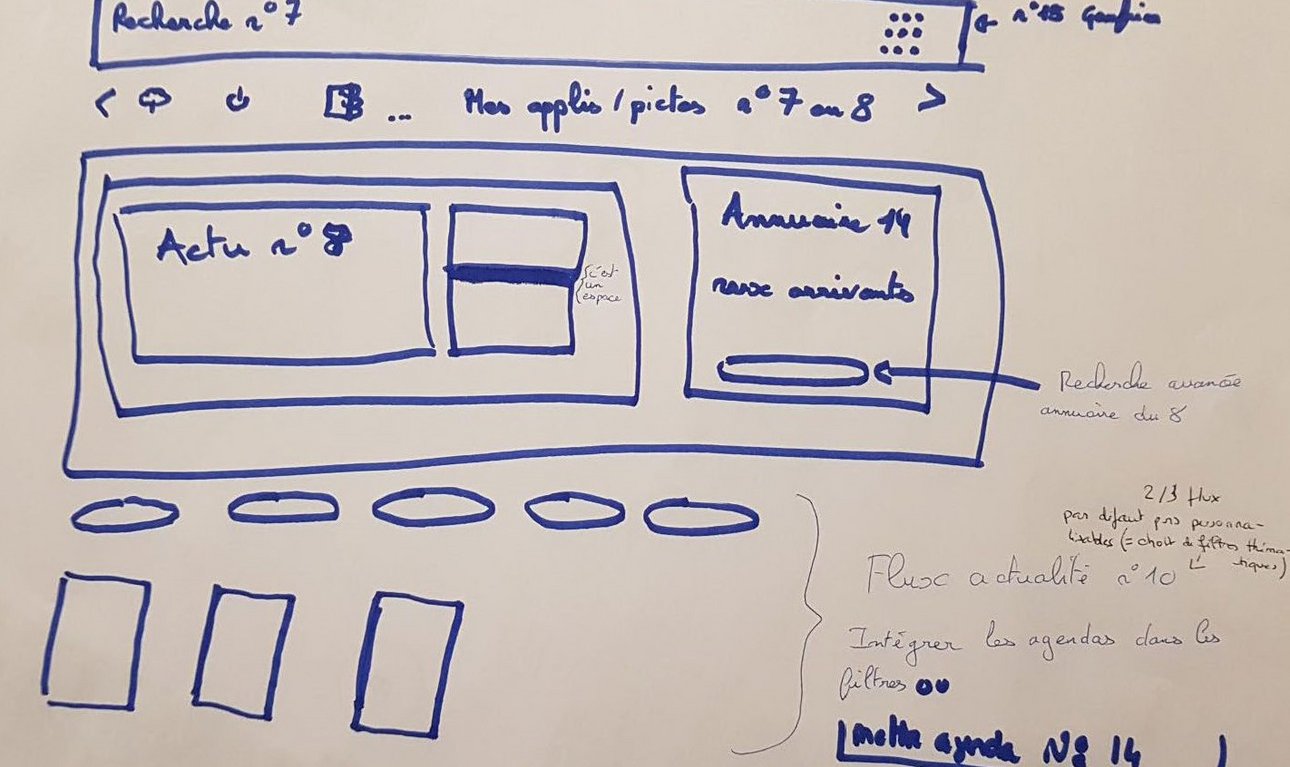 Recherche n°7
n°15 Gaufrier
Mes applis / pictos n°7 ou 8
...
Actu n° 8
c'est
un
espace
Annuaire 14
nvx arrivants
Recherche avancée
annuaire du 8
2/3 flux
par défaut pas personna-
lisables (= choix de filtres théma-
tiques)
Flux actualité n°10
Intégrer les agendas dans les
filtres ou
mettre agenda N° 14